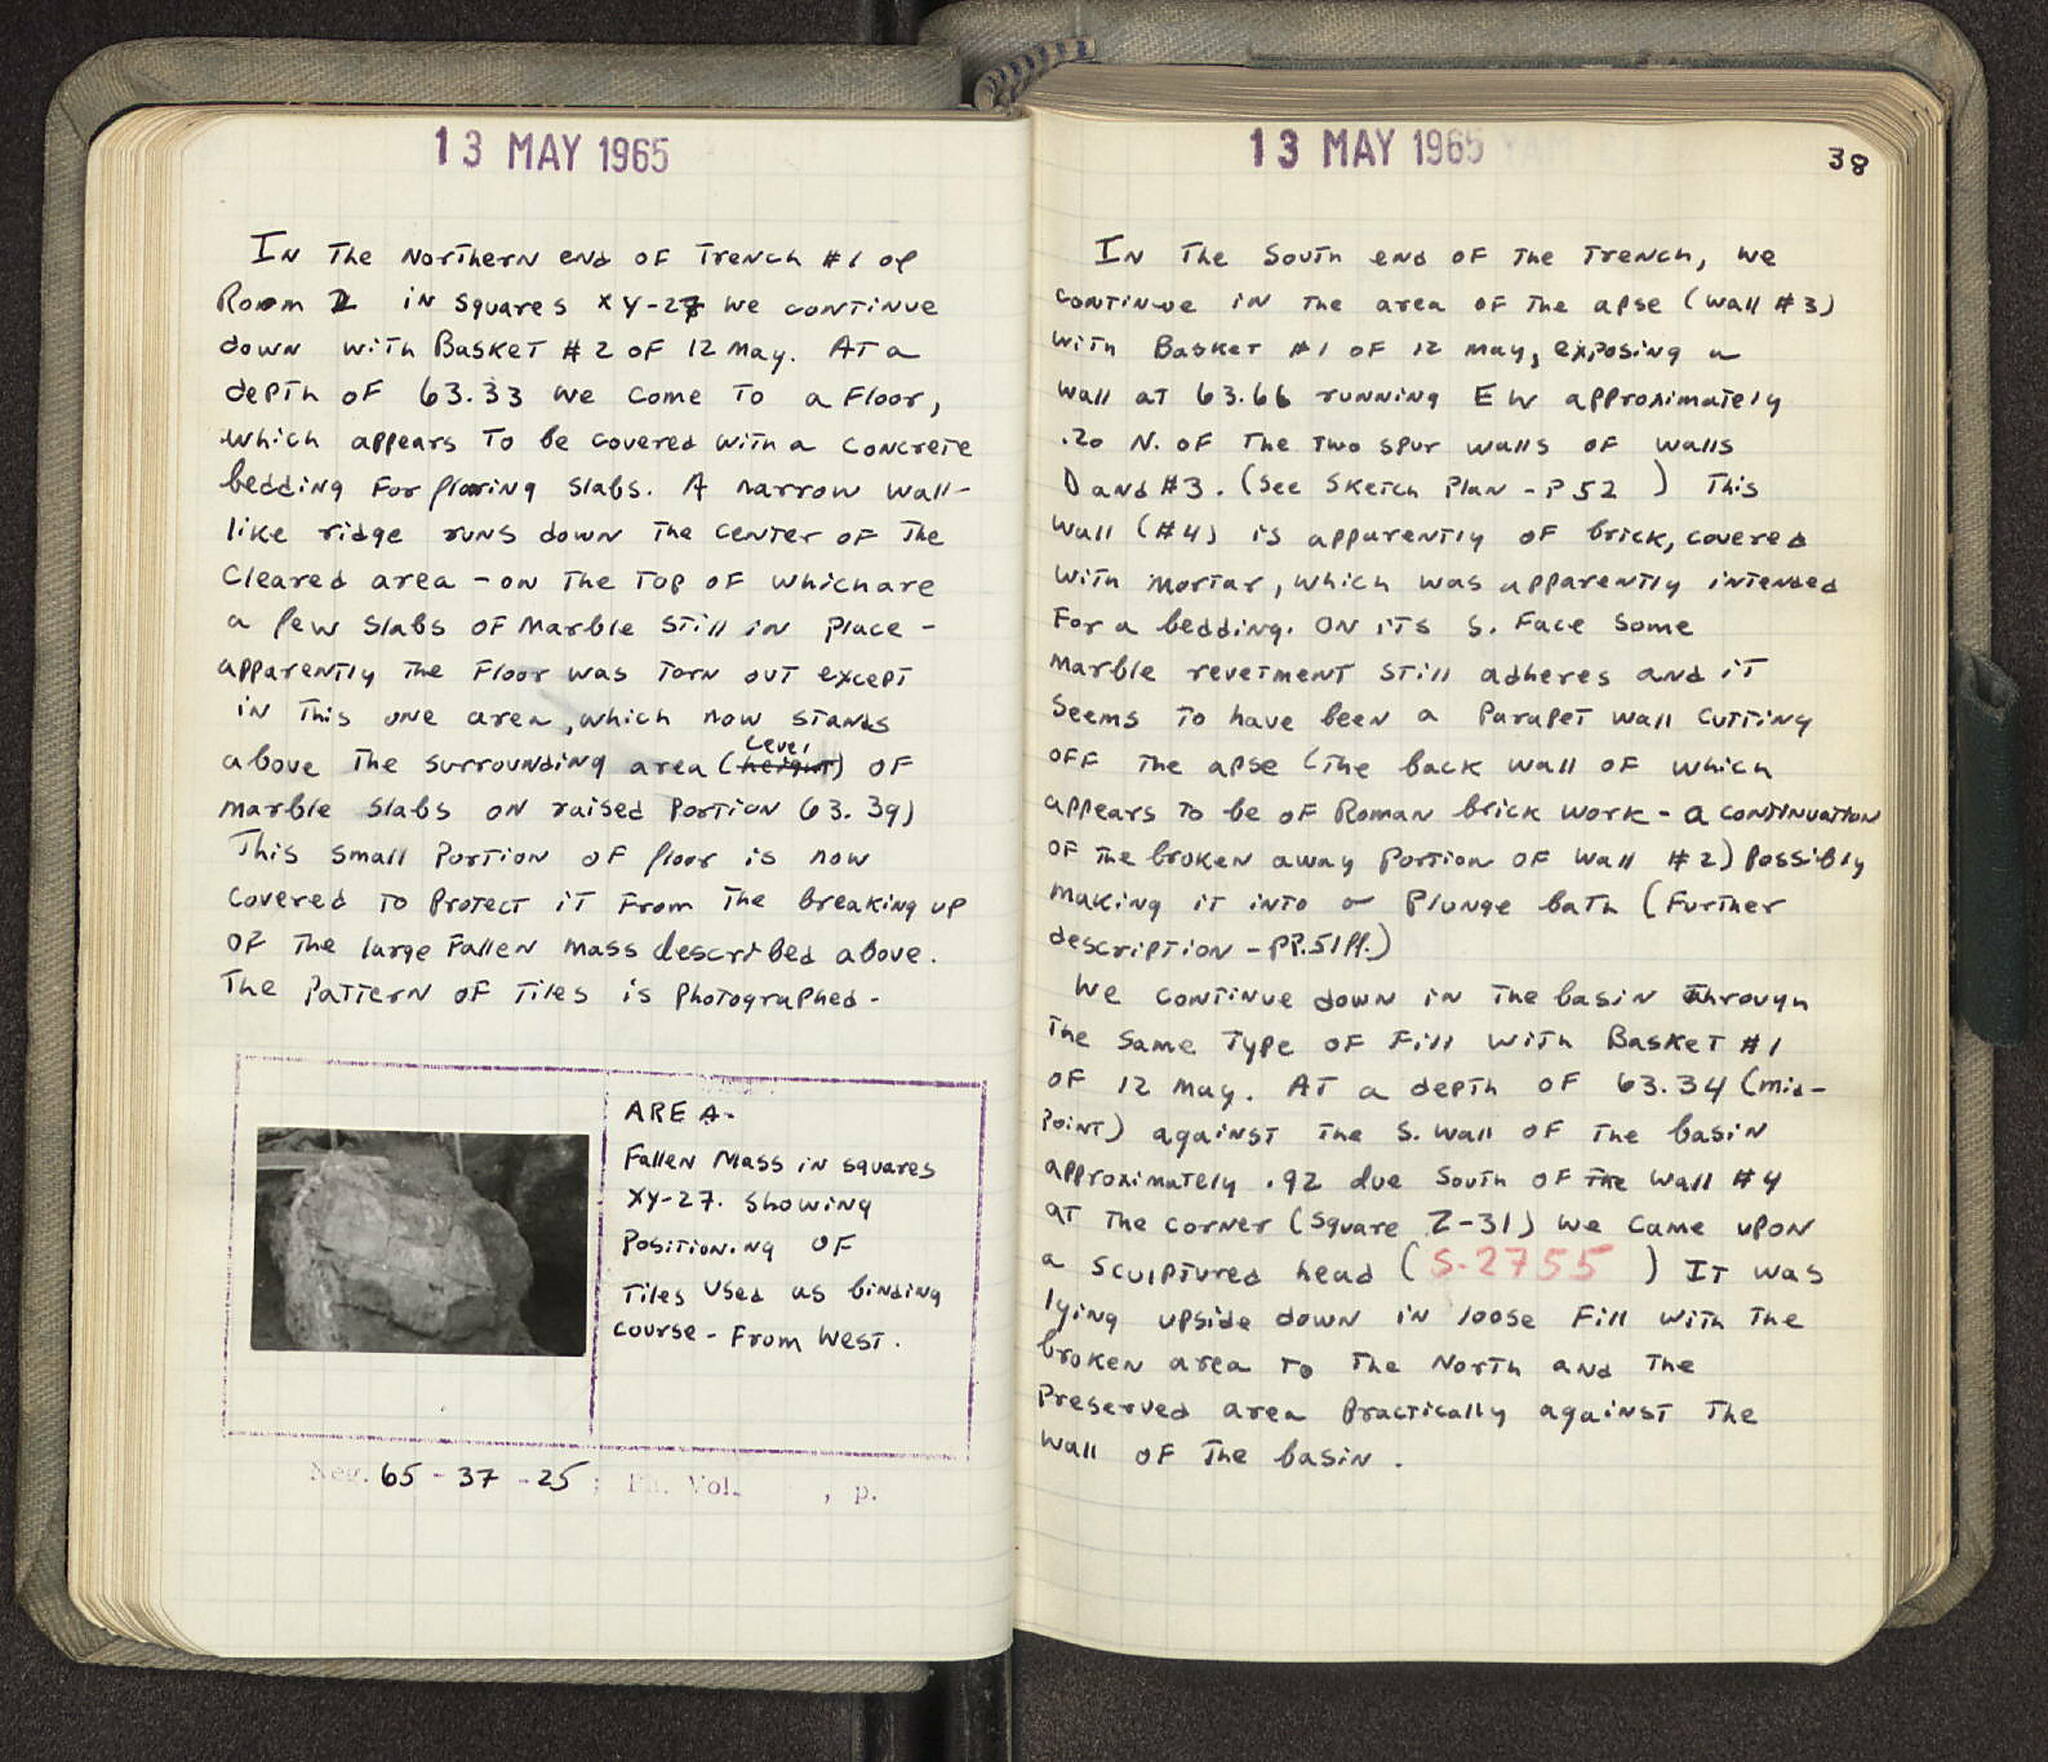 13 MAY 1965
In the Northern end of Trench #1 of
Room 2 in squares XY-27 we continue
down with Basket #2 of 12 May. At a
depth of 63.33 we come to a floor,
which appears to be covered with a concrete
bedding for flooring slabs. A narrow wall-
like ridge runs down the center of the
cleared area - on the top of which are
a few slabs of marble still in place -
apparently the floor was torn out except
in this one area, which now stands
above the surrounding area (height) of
level
marble slabs on raised portion 63.39)
This small portion of floor is now
covered to protect it from the breaking up
of the large fallen mass described above.
The pattern of tiles is photographed.
AREA-
Fallen Mass in squares
XY-27. Showing
Positioning of
Tiles used as binding
course - From West.
Neg. 65 - 37 - 25 ; Ph. Vol. , p.
13 MAY 1965
38
In the South end of the trench, we
continue in the area of the apse (wall #3)
with Basket #1 of 12 May, exposing a
wall at 63.66 running EW approximately
.20 N. of the two spur walls of walls
D and #3. (See Sketch Plan - P 52 ) This
wall (#4) is apparently of brick, covered
with mortar, which was apparently intended
for a bedding. On its S. Face some
marble revetment still adheres and it
seems to have been a parapet wall cutting
off the apse (the back wall of which
appears to be of Roman brick work - a continuation
of the broken away portion of wall #2) possibly
making it into a plunge bath (Further
description - pp. 51 ff.)
We continue down in the basin through
the same type of fill with Basket #1
of 12 May. At a depth of 63.34 (mid-
point) against the S. wall of the basin
approximately .92 due South of the wall #4
at the corner (square Z-31) we came upon
a sculptured head ( S-2755 ) It was
lying upside down in loose fill with the
broken area to the North and the
preserved area practically against the
wall of the basin.